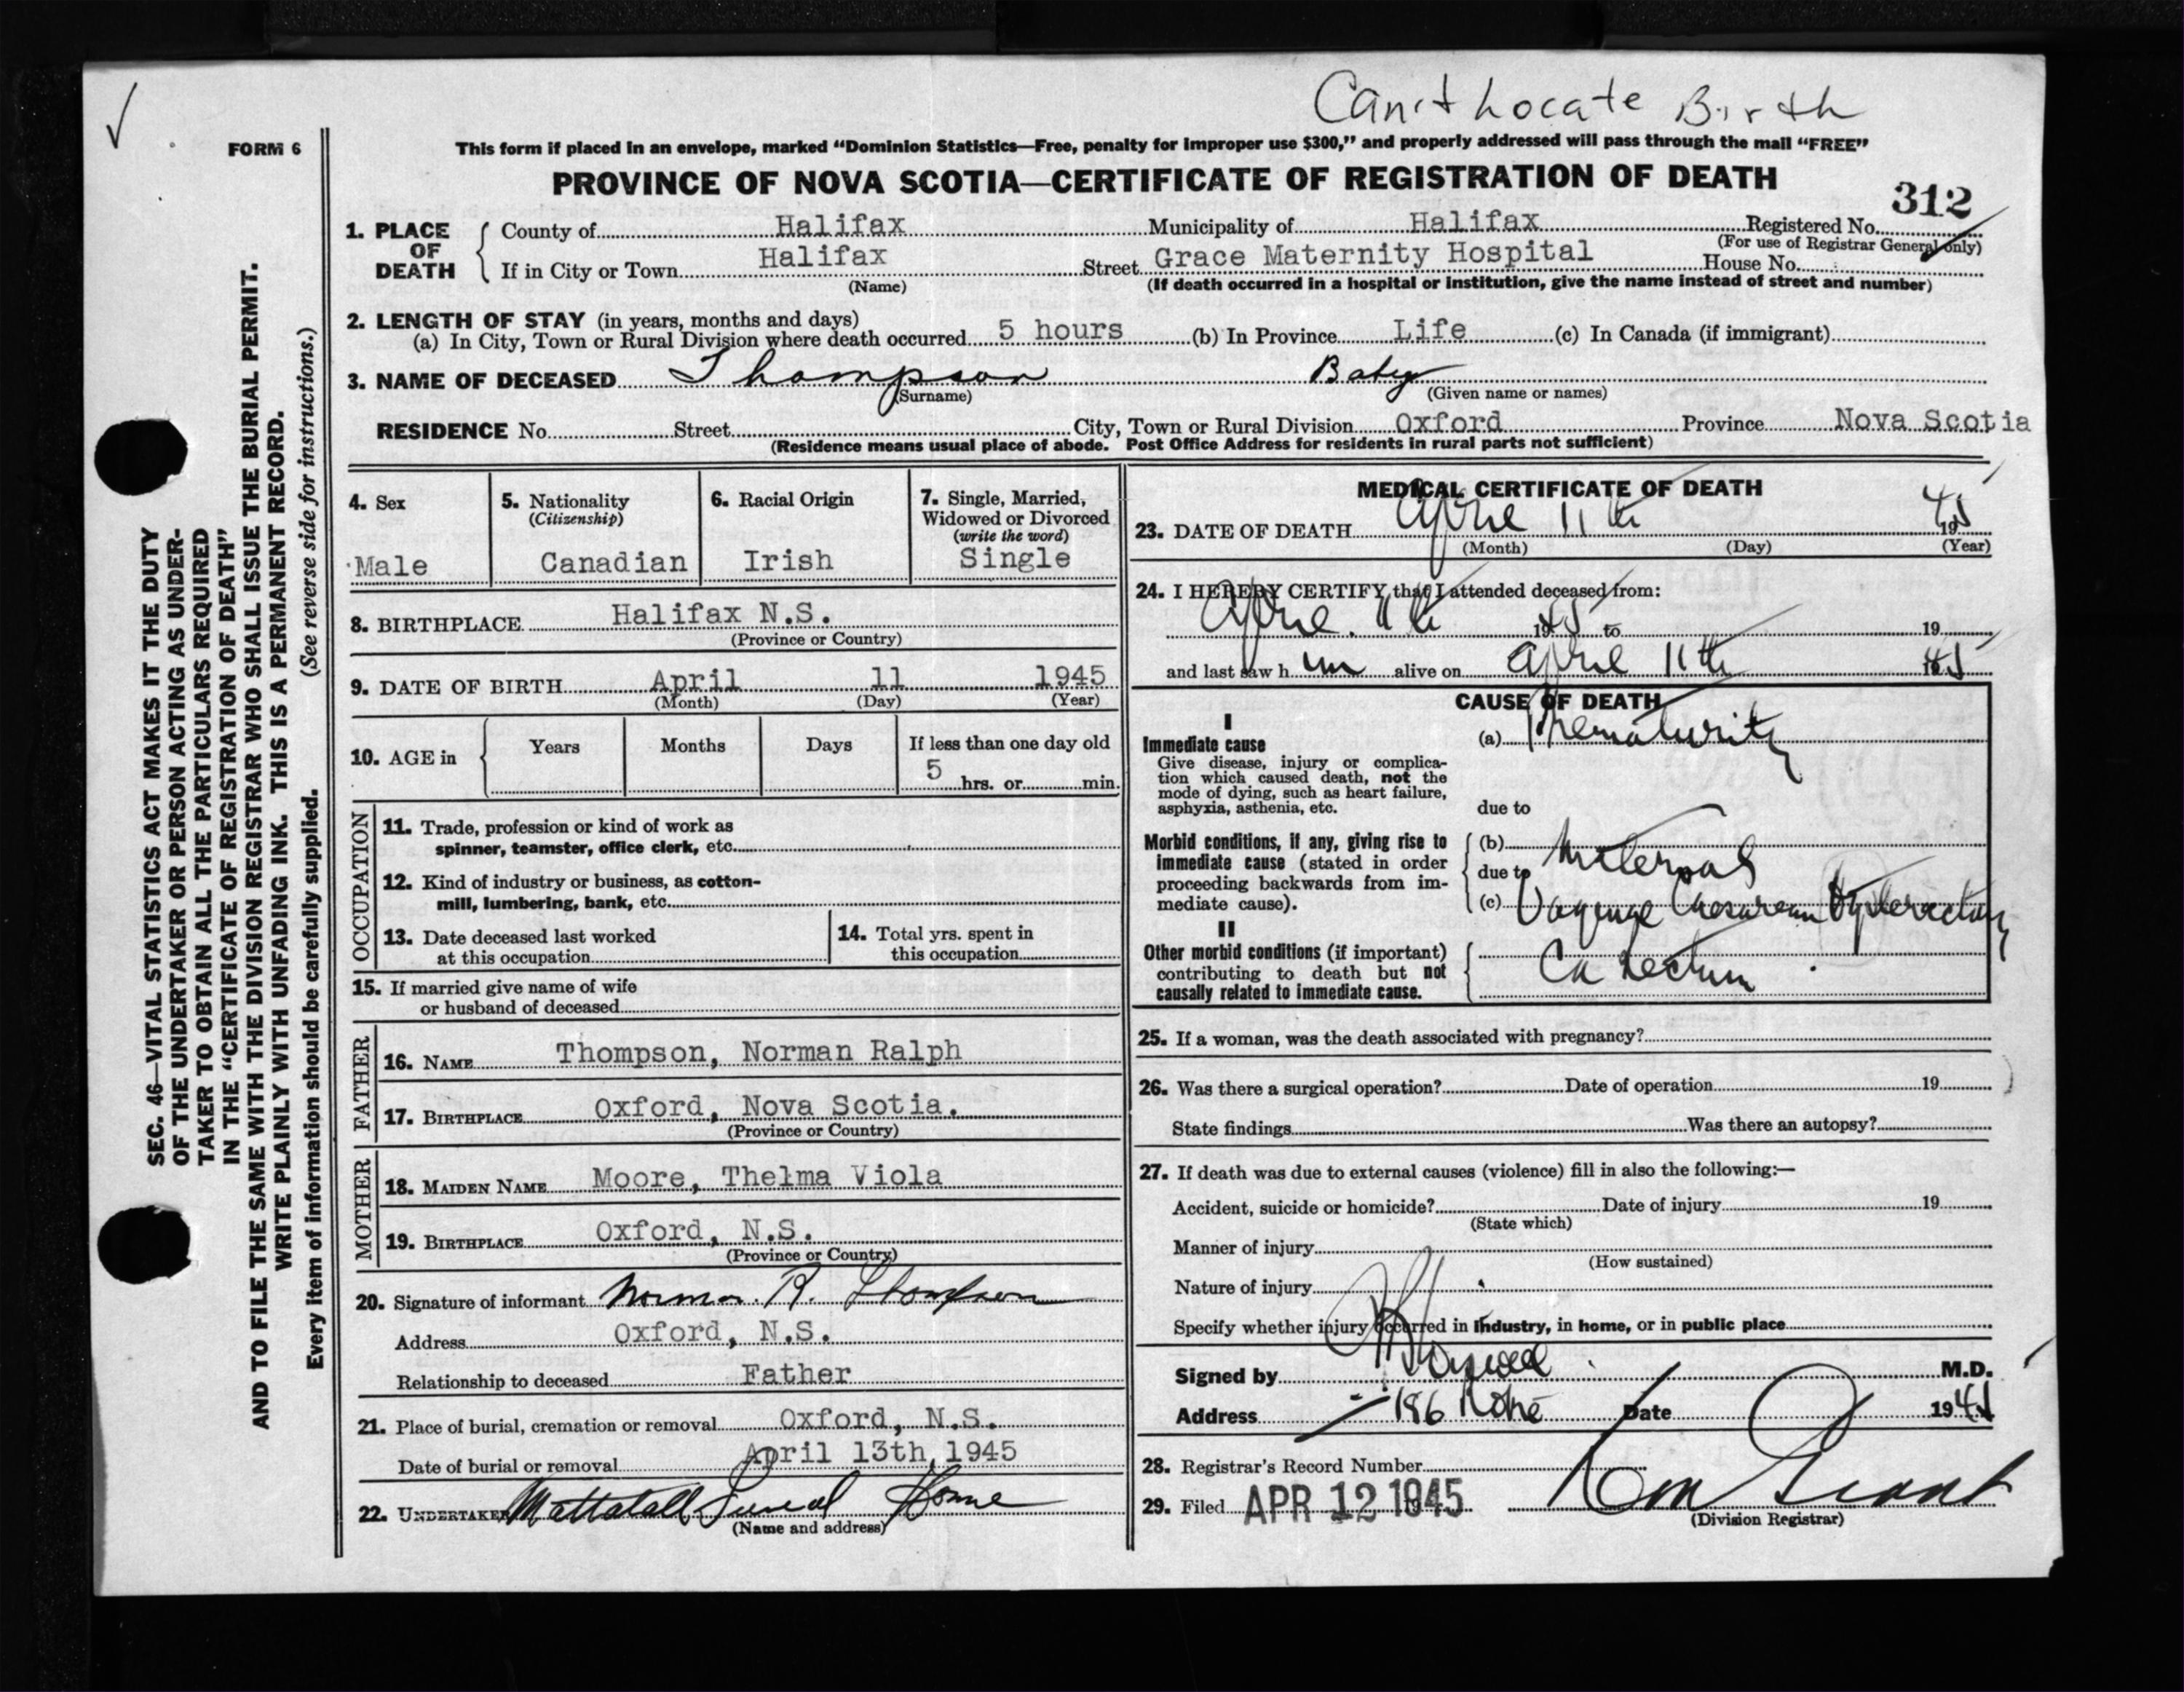 Can't Locate Birth
FORM 6
This form if placed in an envelope, marked “Dominion Statistics—Free, penalty for improper use $300,” and properly addressed will pass through the mail “FREE”
PROVINCE OF NOVA SCOTIA—CERTIFICATE OF REGISTRATION OF DEATH
312
1. PLACE OF DEATH
County of Halifax Municipality of Halifax Registered No.
(For use of Registrar General only)
If in City or Town Halifax Street Grace Maternity Hospital House No.
(Name) (If death occurred in a hospital or institution, give the name instead of street and number)
2. LENGTH OF STAY (in years, months and days)
(a) In City, Town or Rural Division where death occurred 5 hours (b) In Province Life (c) In Canada (if immigrant)
3. NAME OF DECEASED Thompson Baby
(Surname) (Given name or names)
RESIDENCE No. Street City, Town or Rural Division Oxford Province Nova Scotia
(Residence means usual place of abode. Post Office Address for residents in rural parts not sufficient)
4. Sex
Male
5. Nationality
(Citizenship)
Canadian
6. Racial Origin
Irish
7. Single, Married,
Widowed or Divorced
(write the word)
Single
8. BIRTHPLACE Halifax N.S.
(Province or Country)
9. DATE OF BIRTH April 11 1945
(Month) (Day) (Year)
10. AGE in
Years Months Days If less than one day old
5 hrs. or min.
OCCUPATION
11. Trade, profession or kind of work as
spinner, teamster, office clerk, etc.
12. Kind of industry or business, as cotton-
mill, lumbering, bank, etc.
13. Date deceased last worked
at this occupation
14. Total yrs. spent in
this occupation
15. If married give name of wife
or husband of deceased
FATHER
16. NAME Thompson, Norman Ralph
17. BIRTHPLACE Oxford, Nova Scotia.
(Province or Country)
MOTHER
18. MAIDEN NAME Moore, Thelma Viola
19. BIRTHPLACE Oxford, N.S.
(Province or Country)
20. Signature of informant Norman R. Thompson
Address Oxford, N.S.
Relationship to deceased Father
21. Place of burial, cremation or removal Oxford, N.S.
Date of burial or removal April 13th, 1945
22. UNDERTAKER Mattatall Funeral Home
(Name and address)
MEDICAL CERTIFICATE OF DEATH
23. DATE OF DEATH April 11th 1945
(Month) (Day) (Year)
24. I HEREBY CERTIFY that I attended deceased from:
April 11th 1945 to 19
and last saw him alive on April 11th 1945
CAUSE OF DEATH
I
Immediate cause
Give disease, injury or complica-
tion which caused death, not the
mode of dying, such as heart failure,
asphyxia, asthenia, etc.
(a) Prematurity
due to
Morbid conditions, if any, giving rise to
immediate cause (stated in order
proceeding backwards from im-
mediate cause).
(b) Maternal
due to
(c) Caesarean Hysterectomy
II
Other morbid conditions (if important)
contributing to death but not
causally related to immediate cause.
Ca Rectum
25. If a woman, was the death associated with pregnancy?
26. Was there a surgical operation? Date of operation 19
State findings Was there an autopsy?
27. If death was due to external causes (violence) fill in also the following:—
Accident, suicide or homicide? Date of injury 19
(State which)
Manner of injury
(How sustained)
Nature of injury
Specify whether injury occurred in industry, in home, or in public place
Signed by M.D.
Address 186 Date 1945
28. Registrar's Record Number
29. Filed APR 12 1945
(Division Registrar)
SEC. 46—VITAL STATISTICS ACT MAKES IT THE DUTY
OF THE UNDERTAKER OR PERSON ACTING AS UNDER-
TAKER TO OBTAIN ALL THE PARTICULARS REQUIRED
IN THE “CERTIFICATE OF REGISTRATION OF DEATH”
AND TO FILE THE SAME WITH THE DIVISION REGISTRAR WHO SHALL ISSUE THE BURIAL PERMIT.
WRITE PLAINLY WITH UNFADING INK. THIS IS A PERMANENT RECORD.
Every item of information should be carefully supplied. (See reverse side for instructions.)